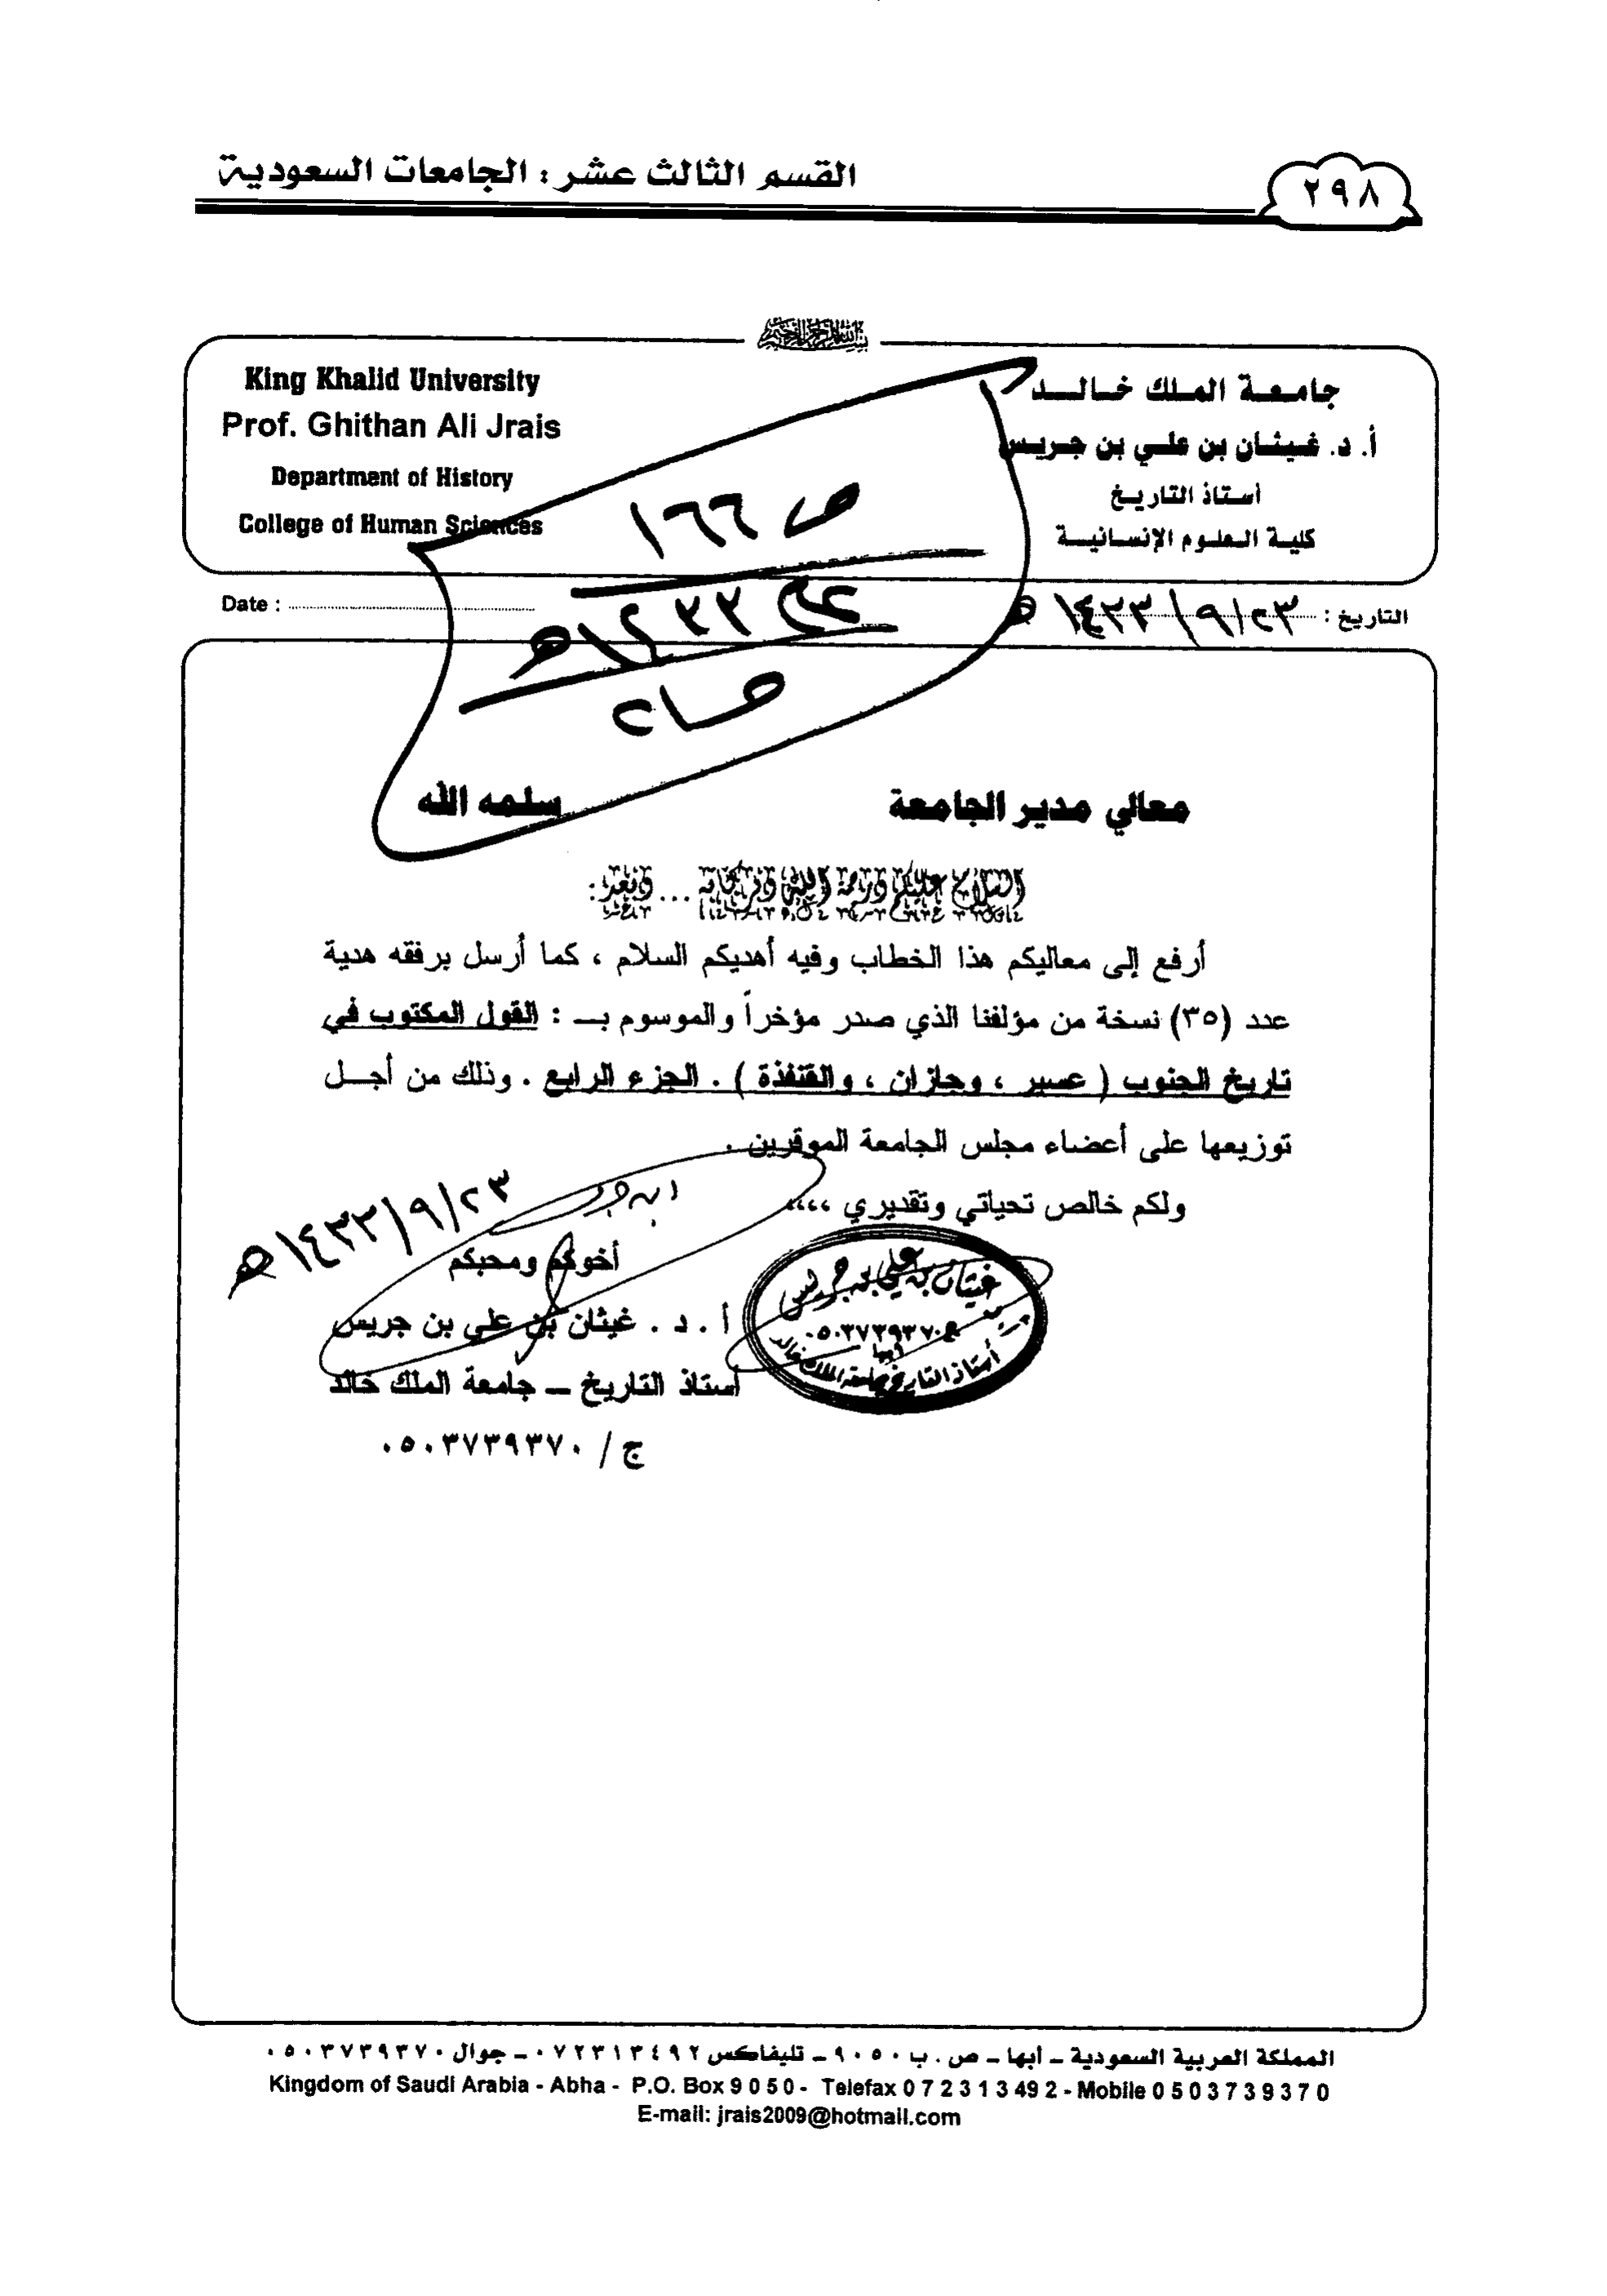 القسم الثالث عشر : الجامعات السعودية
٢٩٨
بسم الله الرحمن الرحيم
جامعة الملك خالد
أ. د. غيثان بن علي بن جريس
أستاذ التاريخ
كلية العلوم الإنسانية
King Khalid University
Prof. Ghithan Ali Jrais
Department of History
College of Human Sciences
ص ١٦٦
١٤٣٣هـ
التاريخ : ٢٣/ ٩/ ١٤٣٣هـ
Date :
معالي مدير الجامعة سلمه الله
السلام عليكم ورحمة الله وبركاته ... وبعد :
أرفع إلى معاليكم هذا الخطاب وفيه أهديكم السلام ، كما أرسل برفقه هدية
عدد (٣٥) نسخة من مؤلفنا الذي صدر مؤخراً والموسوم بـ : القول المكتوب في
تاريخ الجنوب ( عسير ، وجازان ، والقنفذة ) . الجزء الرابع . وذلك من أجل
توزيعها على أعضاء مجلس الجامعة الموقرين .
ولكم خالص تحياتي وتقديري ،،،،
٢٣/ ٩/ ١٤٣٣هـ
أخوكم ومحبكم
أ . د . غيثان بن علي بن جريس
أستاذ التاريخ – جامعة الملك خالد
ج / ٠٥٠٣٧٣٩٣٧٠
غيثان بن علي بن جريس
٠٥٠٣٧٣٩٣٧٠
أبها
أستاذ التاريخ بجامعة الملك خالد
المملكة العربية السعودية – أبها – ص . ب ٩٠٥٠ – تليفاكس ٠٧٢٣١٣٤٩٢ – جوال ٠٥٠٣٧٣٩٣٧٠
Kingdom of Saudi Arabia - Abha - P.O. Box 9 0 5 0 - Telefax 0 7 2 3 1 3 49 2 - Mobile 0 5 0 3 7 3 9 3 7 0
E-mail: jrais2009@hotmail.com